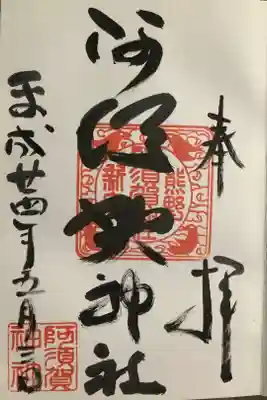 奉拝
阿須賀神社
平成廿四年五月三日
熊野
須賀
新
阿須賀
神社